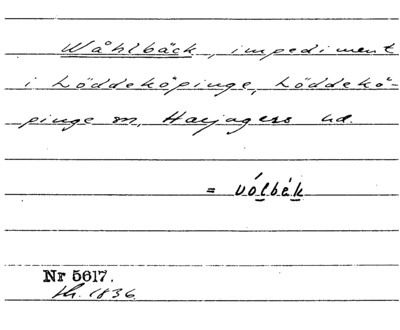 Wåhlbäck, impediment
i Löddeköpinge, Löddekö-
pinge sn, Harjagers hd.
= vólbék
Nr 5617.
1836